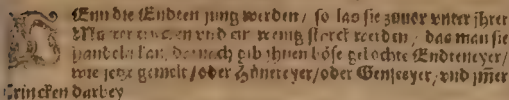 WEnn die Endten jung werden / so las sie zuuor vnter jhrer
Mutter trucken vnd ein wenig sterck werden / das man sie
handeln kan, darnach gib jhnen böse gelochte Endteneyer /
wie jetzt gemelt / oder Hünereyer / oder Genseeyer / vnd jm̃er
Trincken darbey